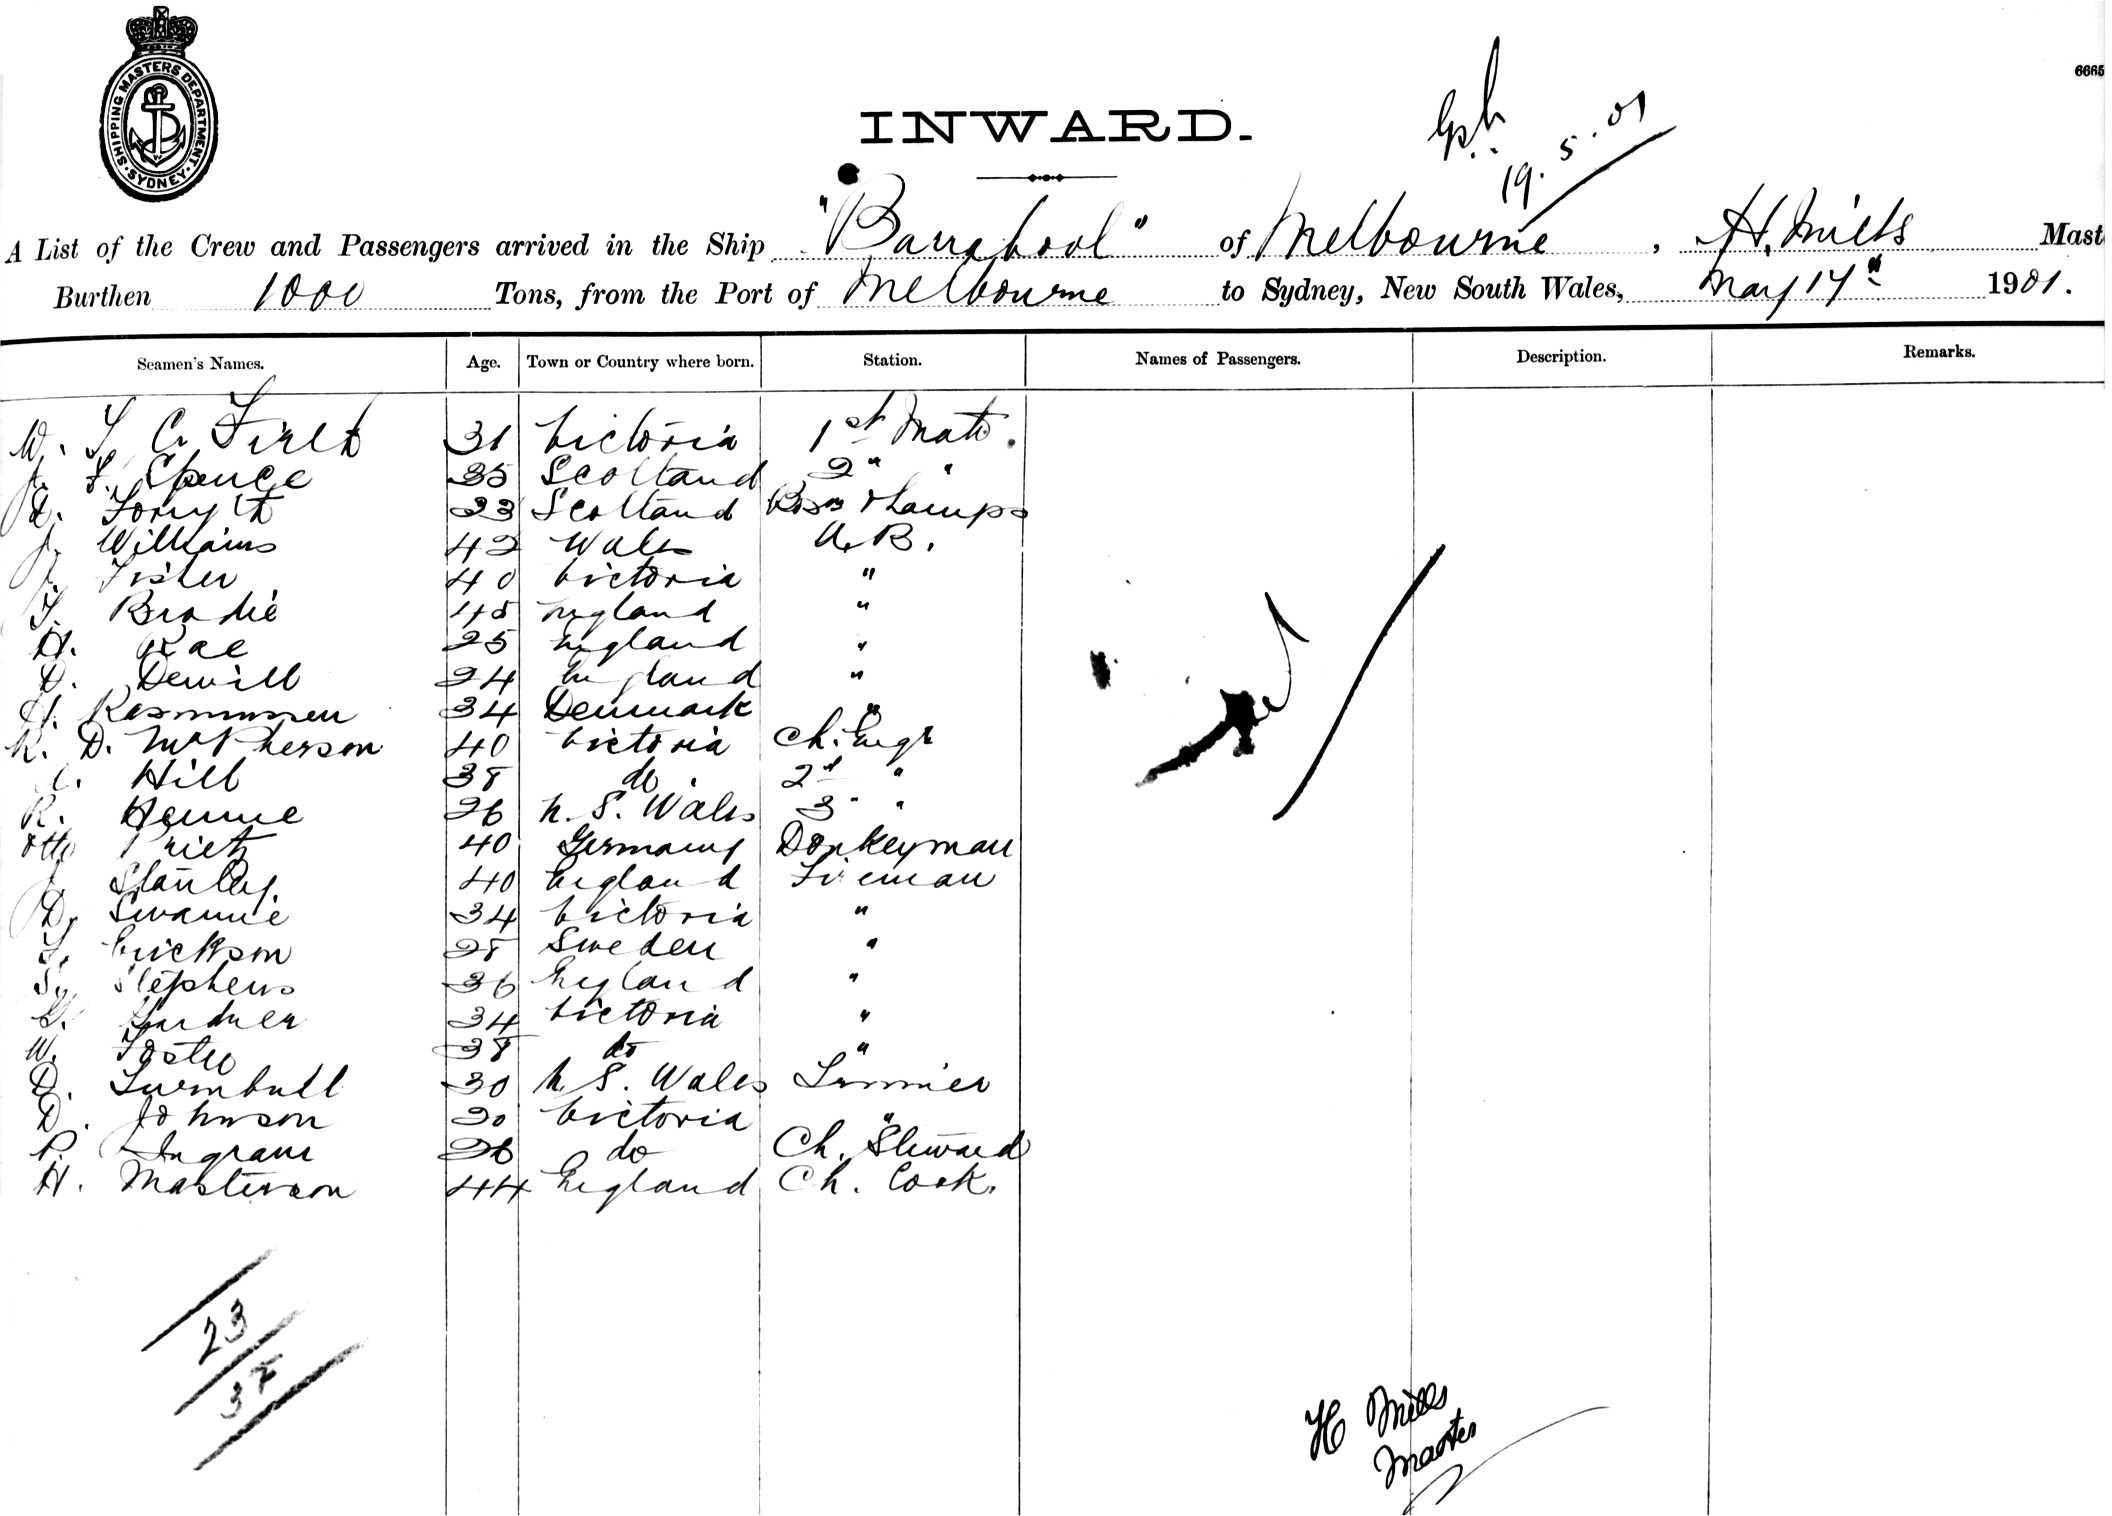 SHIPPING MASTERS DEPARTMENT
SYDNEY
6665
INWARD.
19.5.01
A List of the Crew and Passengers arrived in the Ship "Barrabool" of Melbourne, H. Mills Mast
Burthen 1000 Tons, from the Port of Melbourne to Sydney, New South Wales, May 17th 1901.
Seamen's Names. Age. Town or Country where born. Station. Names of Passengers. Description. Remarks.
W. 31 Victoria 1st Mate.
J. Spence 35 Scotland 2" "
Forsyth 23 Scotland Bosn & Lamps
J. Williams 42 Wales A.B.
J. Fisher 40 Victoria "
T. Brodie 45 England "
H. Rae 25 England "
D. Dewill 24 England "
H. Rasmussen 34 Denmark "
R. D. McPherson 40 Victoria Ch. Engr
Hill 38 do. 2nd "
R. 26 N. S. Wales 3" "
Otto Prietz 40 Germany Donkeyman
J. Stanley 40 England Fireman
D. Swannie 34 Victoria "
Erickson 28 Sweden "
S. Stephens 36 England "
G. Gardner 34 Victoria "
W. Foster 38 do "
D. Turnbull 30 N S. Wales Trimmer
D. Johnson 20 Victoria "
P. Ingram 26 do Ch. Steward
H. Masterson 44 England Ch. Cook.
23
H Mills
Master